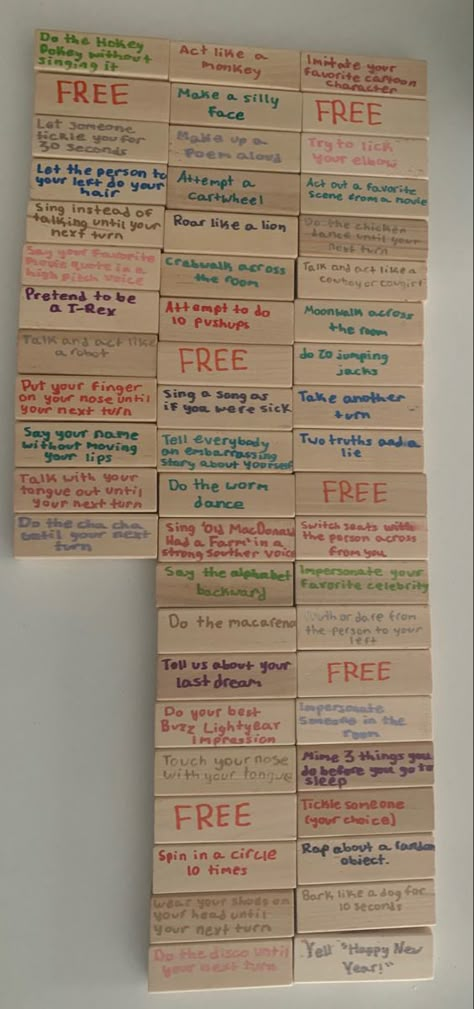 Do the Hokey
Pokey without
singing it
FREE
Let someone
tickle you for
30 seconds
Let the person to
your left do your
hair
Sing instead of
talking until your
next turn
Say your favorite
movie quote in a
high pitch voice
Pretend to be
a T-Rex
Talk and act like
a robot
Put your finger
on your nose until
your next turn
Say your name
without moving
your lips
Talk with your
tongue out until
your next turn
Do the cha cha
until your next
turn
Act like a
monkey
Make a silly
face
Make up a
Poem aloud
Attempt a
cartwheel
Roar like a lion
Crabwalk across
the room
Attempt to do
10 pushups
FREE
Sing a song as
if you were sick
Tell everybody
an embarrassing
story about yourself
Do the worm
dance
Sing "Old MacDonald
Had a Farm" in a
strong souther voice
Say the alphabet
backward
Do the macarena
Tell us about your
last dream
Do your best
Buzz Lightyear
Impression
Touch your nose
with your tongue
FREE
Spin in a circle
10 times
wear your shoes on
your head until
your next turn
Do the disco until
your next turn
Imitate your
favorite cartoon
character
FREE
Try to lick
your elbow
Act out a favorite
scene from a movie
Do the chicken
dance until your
next turn
Talk and act like a
cowboy or cowgirl
Moonwalk across
the room
do 20 jumping
jacks
Take another
turn
Two truths and a
lie
FREE
Switch seats with
the person across
from you
Impersonate your
favorite celebrity
Truth or dare from
the person to your
left
FREE
Impersonate
Someone in the
room
Mime 3 things you
do before you go to
sleep
Tickle someone
(your choice)
Rap about a random
object.
Bark like a dog for
10 seconds
Yell "Happy New
Year!"